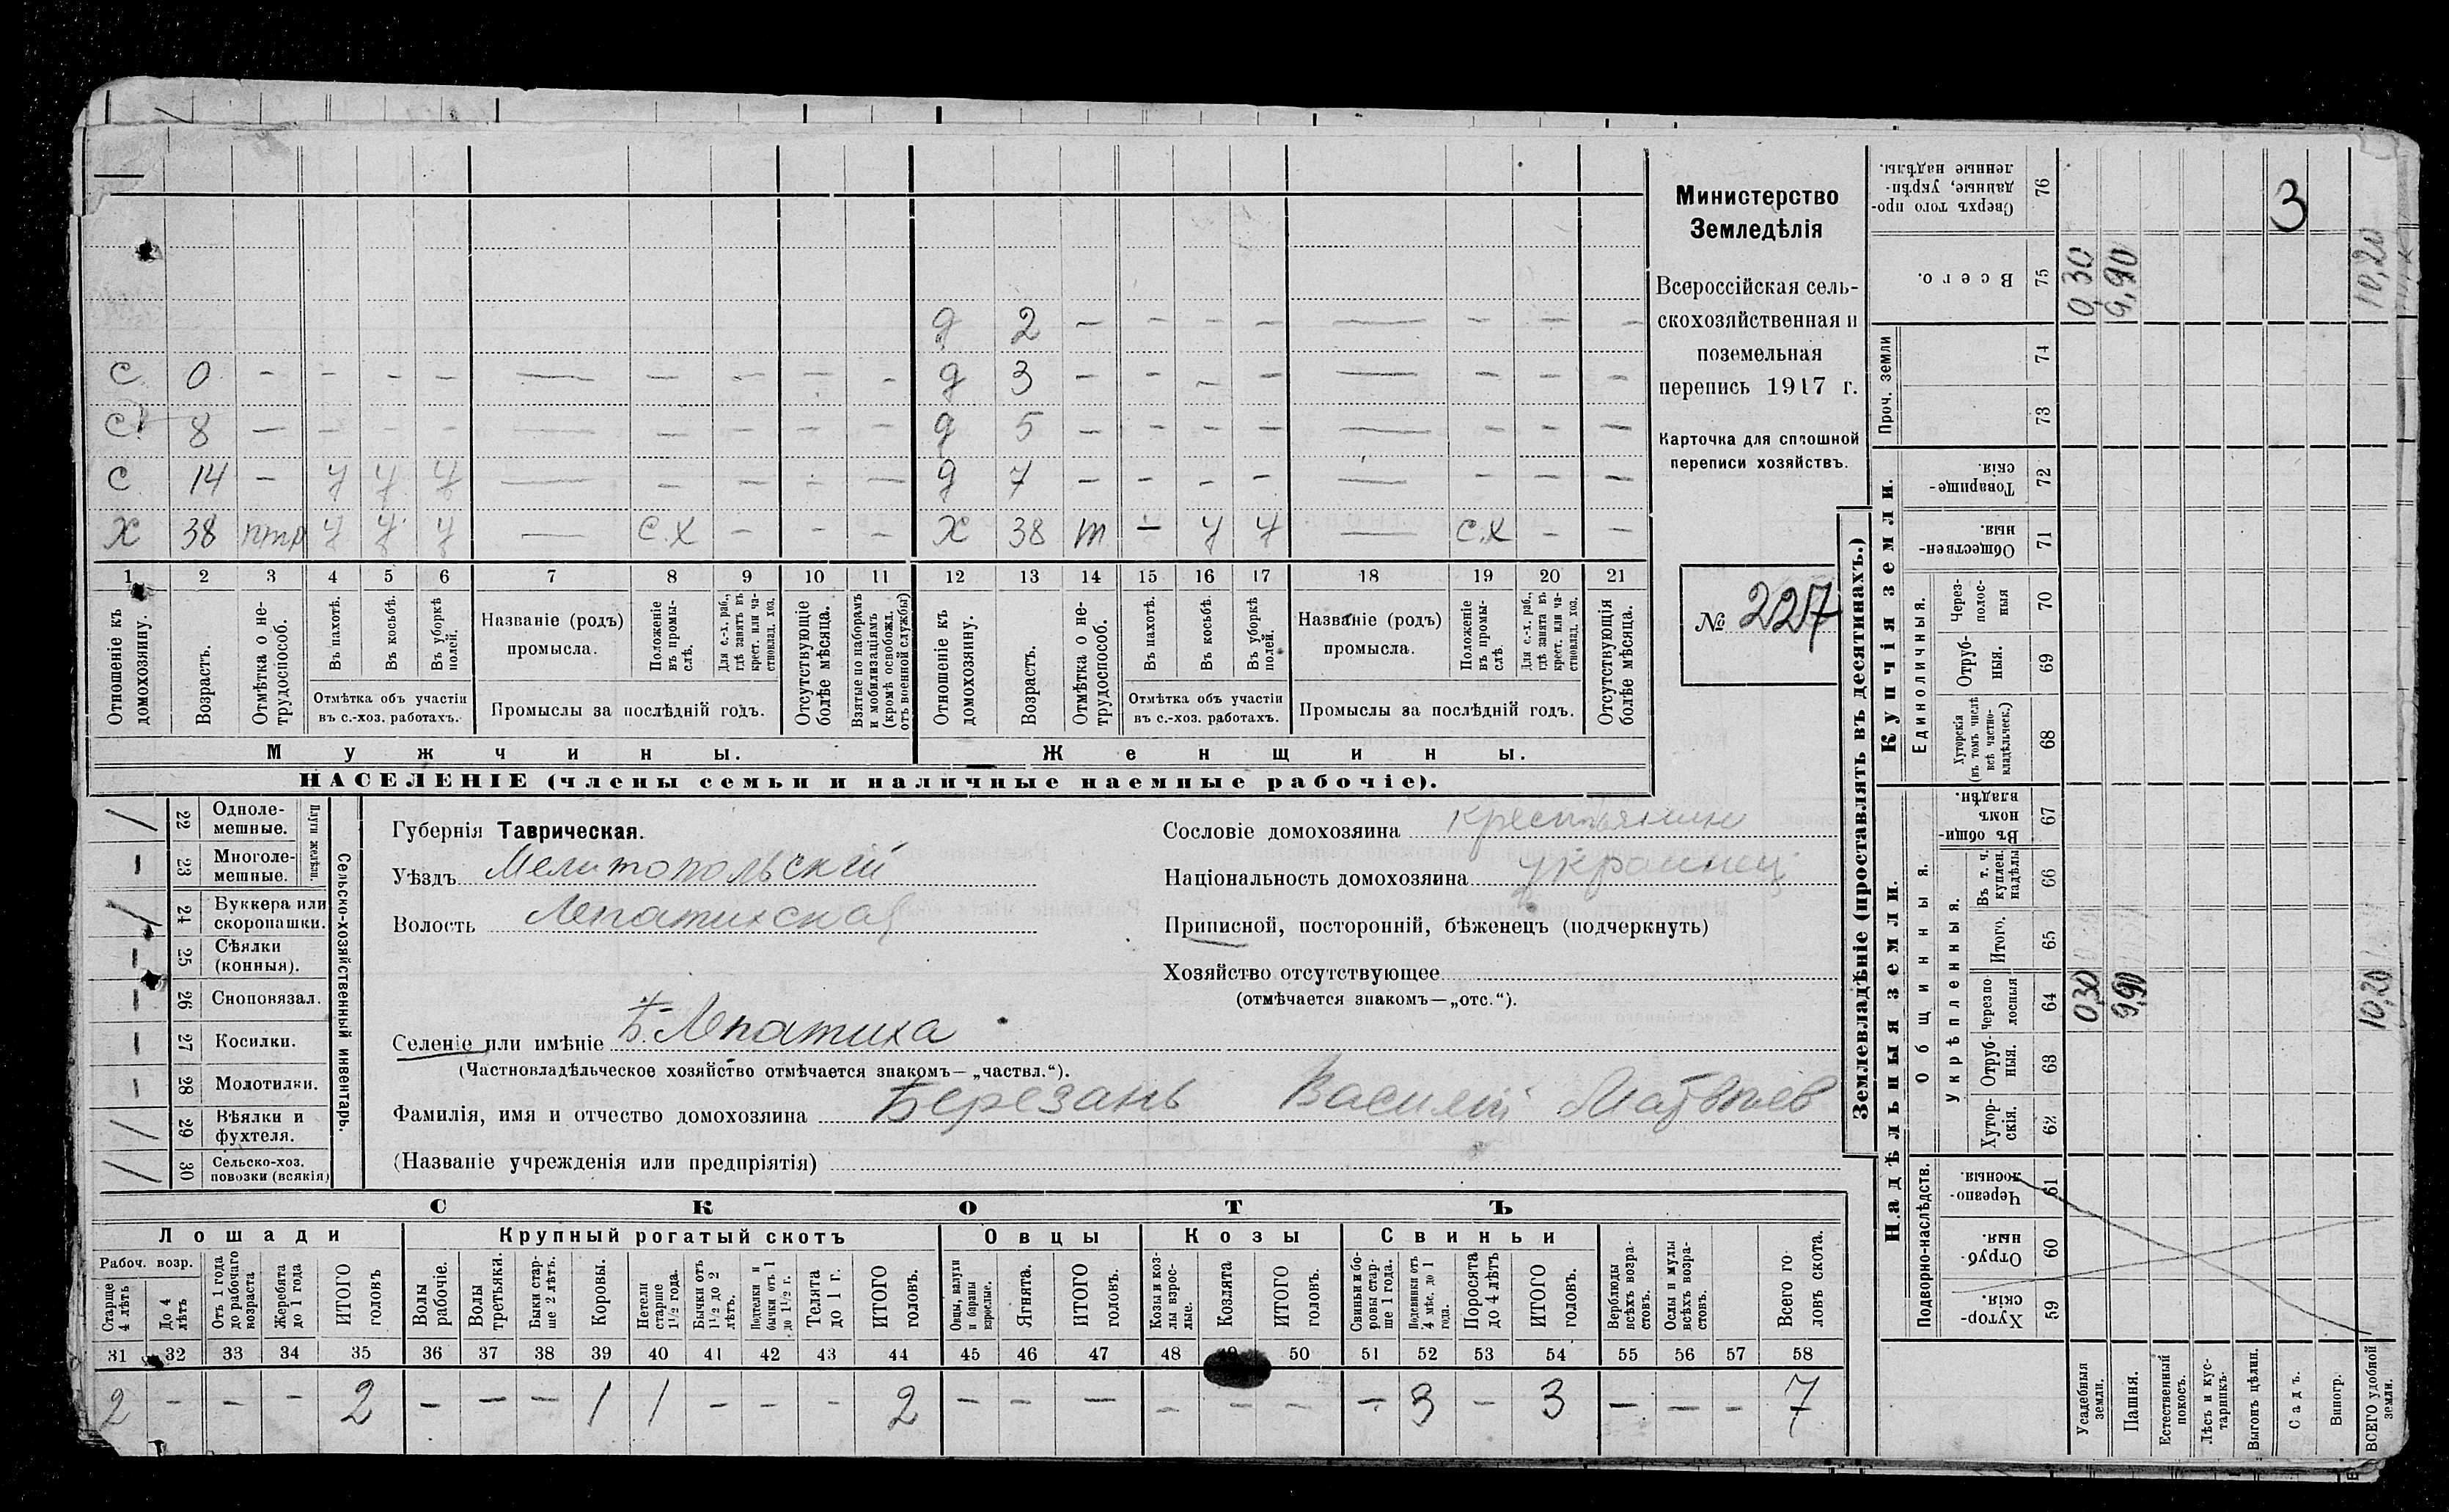 3
Министерство
Земледѣлія
Всероссійская сель-
скохозяйственная и
поземельная
перепись 1917 г.
Карточка для сплошной
переписи хозяйствъ.
№ 227
д 2 — — — — — — — —
С 0 — — — — — — — — — д 3 — — — — — — — —
С 8 — — — — — — — — — д 5 — — — — — — — —
С 14 — у у у — — — — — д 7 — — — — — — — —
Х 38 у у у — С.Х — — — Х 38 т — у у — С.Х — —
1 2 3 4 5 6 7 8 9 10 11 12 13 14 15 16 17 18 19 20 21
Отношеніе къ домохозяину.
Возрастъ.
Отмѣтка о не-трудоспособ.
Въ пахотѣ.
Въ косьбѣ.
Въ уборкѣ полей.
Отмѣтка объ участіи въ с.-хоз. работахъ.
Названіе (родъ) промысла.
Положеніе въ промы-слѣ.
Для с.-х. раб., гдѣ занятъ въ крест. или ча-стновлад. хоз.
Промыслы за послѣдній годъ.
Отсутствующіе болѣе мѣсяца.
Взятые по наборамъ и мобилизаціямъ (кромѣ освобожд. отъ военной службы)
Отношеніе къ домохозяину.
Возрастъ.
Отмѣтка о не-трудоспособ.
Въ пахотѣ.
Въ косьбѣ.
Въ уборкѣ полей.
Отмѣтка объ участіи въ с.-хоз. работахъ.
Названіе (родъ) промысла.
Положеніе въ промы-слѣ.
Для с.-х. раб., гдѣ занята въ крест. или ча-стновлад. хоз.
Промыслы за послѣдній годъ.
Отсутствующія болѣе мѣсяца.
Мужчины. Женщины.
НАСЕЛЕНІЕ (члены семьи и наличные наемные рабочіе).
Сельско-хозяйственный инвентарь.
Плуги желѣзн.
/ 22 Одноле-мешные.
— 23 Многоле-мешные.
/ 24 Буккера или скоропашки.
— 25 Сѣялки (конныя).
— 26 Сноповязал.
— 27 Косилки.
— 28 Молотилки.
/ 29 Вѣялки и фухтеля.
/ 30 Сельско-хоз. повозки (всякія)
Губернія Таврическая.
Уѣздъ Мелитопольскій
Волость Лепатихская
Селеніе или имѣніе Б. Лепатиха
(Частновладѣльческое хозяйство отмѣчается знакомъ—„частвл.“).
Фамилія, имя и отчество домохозяина Березань Василій Матвѣев
(Названіе учрежденія или предпріятія)
Сословіе домохозяина крестьянин
Національность домохозяина украинец
Приписной, посторонній, бѣженецъ (подчеркнуть)
Хозяйство отсутствующее
(отмѣчается знакомъ—„отс.“).
СКОТЪ
Лошади Крупный рогатый скотъ Овцы Козы Свиньи
Рабоч. возр.
Старше 4 лѣтъ
До 4 лѣтъ
Отъ 1 года до рабочаго возраста
Жеребята до 1 года
ИТОГО головъ
Волы рабочіе.
Волы третьяки.
Быки стар-ше 2 лѣтъ.
Коровы.
Нетели старше 1½ года.
Бычки отъ 1½ до 2 лѣтъ.
Подтелки и бычки отъ 1 до 1½ г.
Телята до 1 г.
ИТОГО головъ.
Овцы, валухи и бараны взрослые.
Ягнята.
ИТОГО головъ.
Козы и коз-лы взрос-лые.
Козлята
ИТОГО головъ.
Свиньи и бо-ровы стар-ше 1 года.
Подсвинки отъ 4 мѣс. до 1 года.
Поросята до 4 лѣтъ
ИТОГО головъ.
Верблюды всѣхъ возра-стовъ.
Ослы и мулы всѣхъ возра-стовъ.
Всего го-ловъ скота.
31 32 33 34 35 36 37 38 39 40 41 42 43 44 45 46 47 48 50 51 52 53 54 55 56 57 58
2 — — — 2 — — — 1 1 — — — 2 — — — — — — — 3 — 3 — — — 7
Землевладѣніе (проставлять въ десятинахъ.)
Купчія земли.
Надѣльныя земли.
Сверхъ того про-данные, укрѣп-ленные надѣлы. 76
Всего. 75 0,30 9,90 10,20
Проч. земли 74
73
Товарище-скія. 72
Обществен-ныя. 71
Единоличныя.
Через-полос-ныя 70
Отруб-ныя. 69
Хуторскія (въ томъ числѣ всѣ частно-владѣльческ.) 68
Общинныя.
Въ общи-номъ владѣн. 67
Укрѣпленныя.
Въ т. ч. куплен. надѣлы 66
Итого. 65
Черезпо-лосныя 64 0,30 9,90 10,20
Отруб-ныя. 63
Хутор-скія. 62
Подворно-наслѣдств.
Черезпо-лосныя. 61
Отруб-ныя. 60
Хутор-скія. 59
Усадебныя земли.
Пашня.
Естественный покосъ.
Лѣсъ и кус-тарникъ.
Выгонъ цѣлин.
Садъ.
Виногр.
ВСЕГО удобной земли.